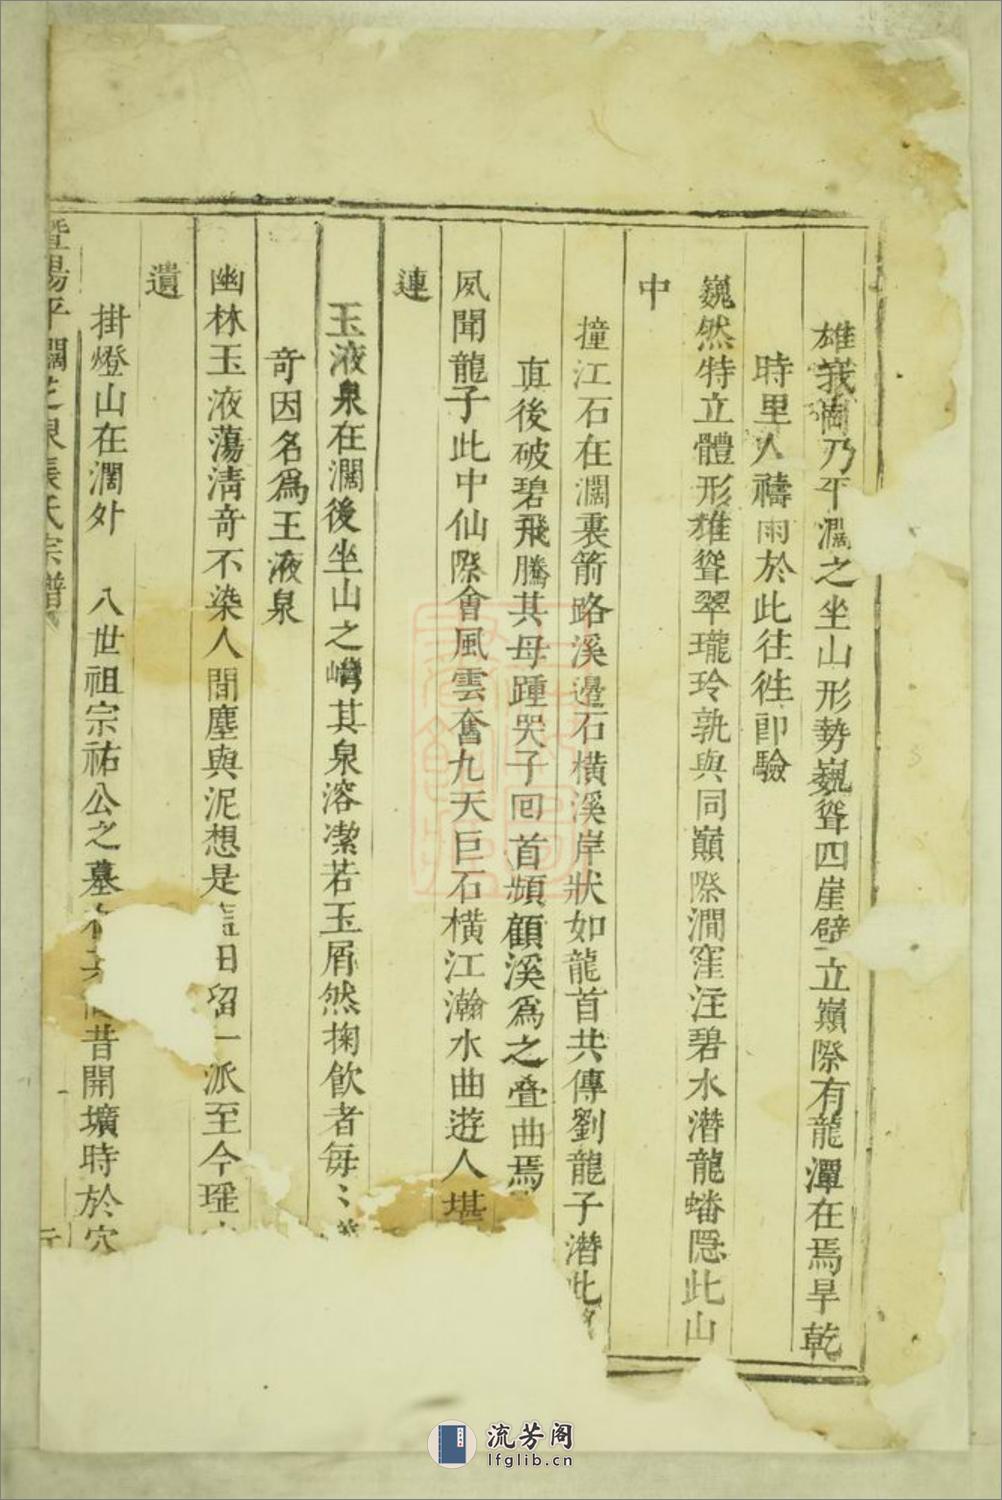 雄莪崗乃平濶之坐山形勢巍聳四崖壁立巔際有龍潭在焉旱乾
時里人禱雨於此往徃即驗
巍然特立體形雄聳翠瓏玲孰與同巔際澗窪注碧水潛龍蟠隱此山
中
撞江石在濶裏箭路溪邊石橫溪岸狀如龍首共傳劉龍子潛此
直後破碧飛騰其母踵哭子回首頻顧溪爲之叠曲焉
夙聞龍子此中仙際會風雲奮九天巨石橫江瀚水曲遊人堪
連
玉液泉在濶後坐山之嶹其泉溶潔若玉屑然掬飲者每〻
奇因名爲王液泉
幽林玉液蕩淸奇不染人間塵與泥想是留一派至今瑶
遺
掛燈山在濶外 八世祖宗祐公之墓昔開壙時於穴
暨陽平濶芝泉張氏宗譜
流芳阁
lfglib.cn